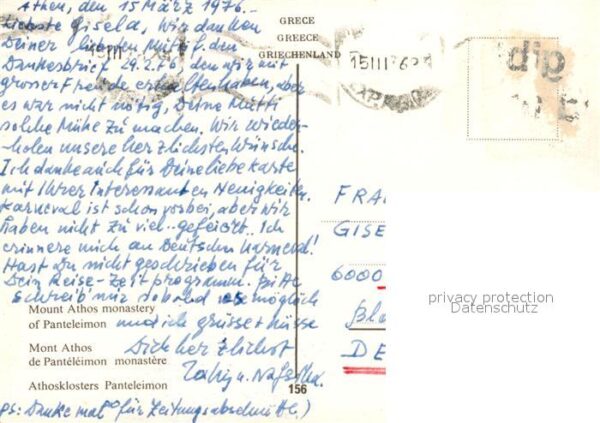 Athen, den 15 März 1976.-
Liebste Gisela, Wir danken
Deiner lieben Mutti f. den
Dankesbrief 29.2.76, den wir mit
grosser Freude erhalten haben, aber
es war nicht nötig, Deine Mutti
solche Mühe zu machen. Wir wieder-
holen unsere herzlichsten Wünsche.
Ich danke auch für Deine liebe Karte
mit Ihrer Interessanten Neuigkeiten.
Karneval ist schon vorbei, aber wir
haben nicht zu viel gefeiert. Ich
erinnere mich an Deutschen Karneval!
Hast Du nicht geschrieben für
Dein Reise-Zeit programm. Bitte
schreib mir sobald es möglich
und ich grüsse + küsse
Dich herzlichst
PS: Danke mal für Zeitungsabschnitte!)
GRECE
GREECE
GRIECHENLAND
15III76
dig
FRA
GISE
6000
DE
Mount Athos monastery
of Panteleimon
Mont Athos
de Pantéléimon monastère
Athosklosters Panteleimon
156
privacy protection
Datenschutz